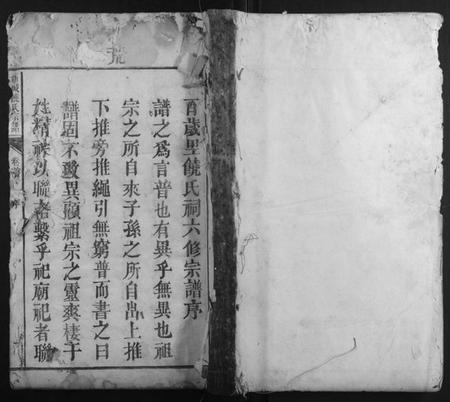 荒
百歲里饒氏祠六修宗譜序
譜之爲言普也有異乎無異也祖
宗之所自來子孫之所自出上推
下推旁推繩引無窮普而書之曰
譜固不敢異顧祖宗之靈爽棲于
姓精神以聯絡繫乎祀廟祀者聯
饒氏宗譜
卷首
序